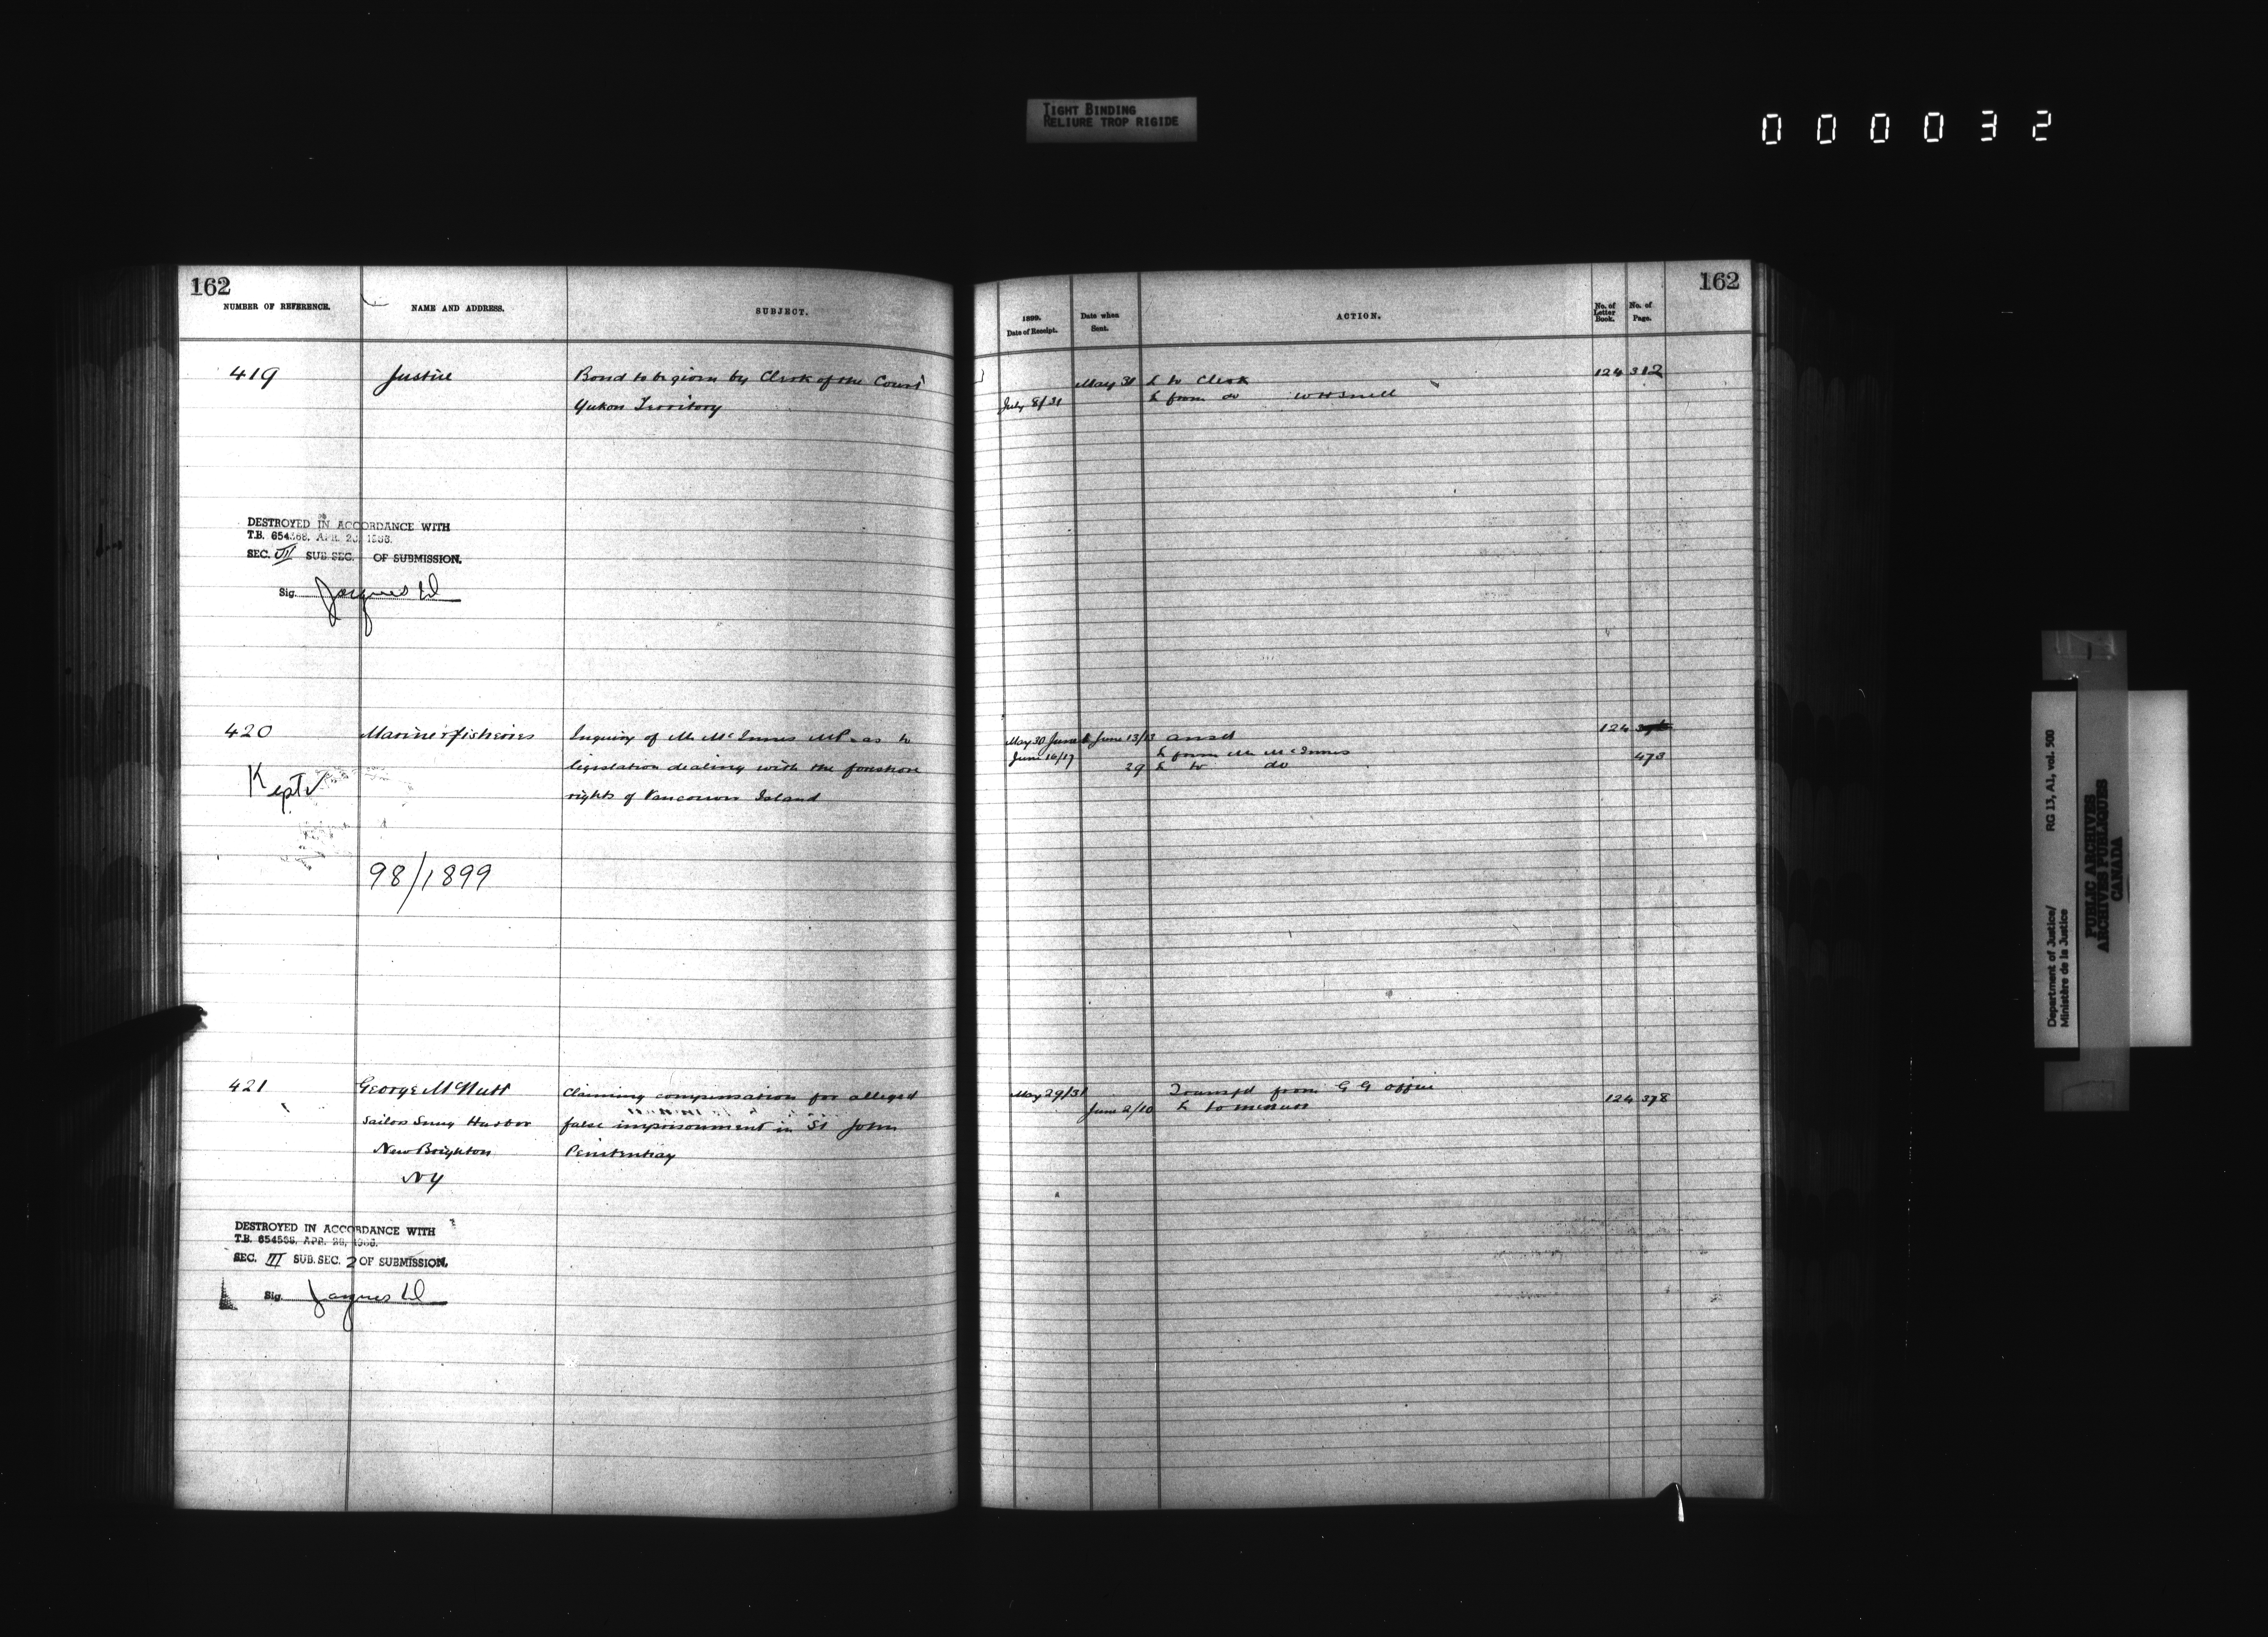 TIGHT BINDING
RELIURE TROP RIGIDE
000032
162
NUMBER OF REFERENCE.
NAME AND ADDRESS.
SUBJECT.
419
Justice
Bond to be given by Clerk of the Court
Yukon Territory
DESTROYED IN ACCORDANCE WITH
T.B. 654568, APR. 26, 1966.
SEC. III SUB SEC. OF SUBMISSION.
Sig.
420
Marine & fisheries
Inquiry of Mr McInnes MP. as to
legislation dealing with the foreshore
rights of Vancouver Island
Kept
98/1899
421
George McNutt
Claiming compensation for alleged
Sailors Snug Harbor
false imprisonment in St John
New Brighton
Penitentiay
NY
DESTROYED IN ACCORDANCE WITH
T.B. 654568, APR. 26, 1966.
SEC. III SUB. SEC. 2 OF SUBMISSION.
Sig.
162
1899.
Date of Receipt.
Date when
Sent.
ACTION.
No. of
Letter
Book.
No. of
Page.
May 31 L to Clerk 124 312
July 8/31 L from do W H Snell
May 30 June June 13/13 ansd 124
June 16/17 L from Mr McInnes
29 L to do 473
May 29/31 Transfd from G G office
June 2/10 L to 124 378
Department of Justice/
Ministère de la Justice
RG 13, A1, vol. 500
PUBLIC ARCHIVES
ARCHIVES PUBLIQUES
CANADA